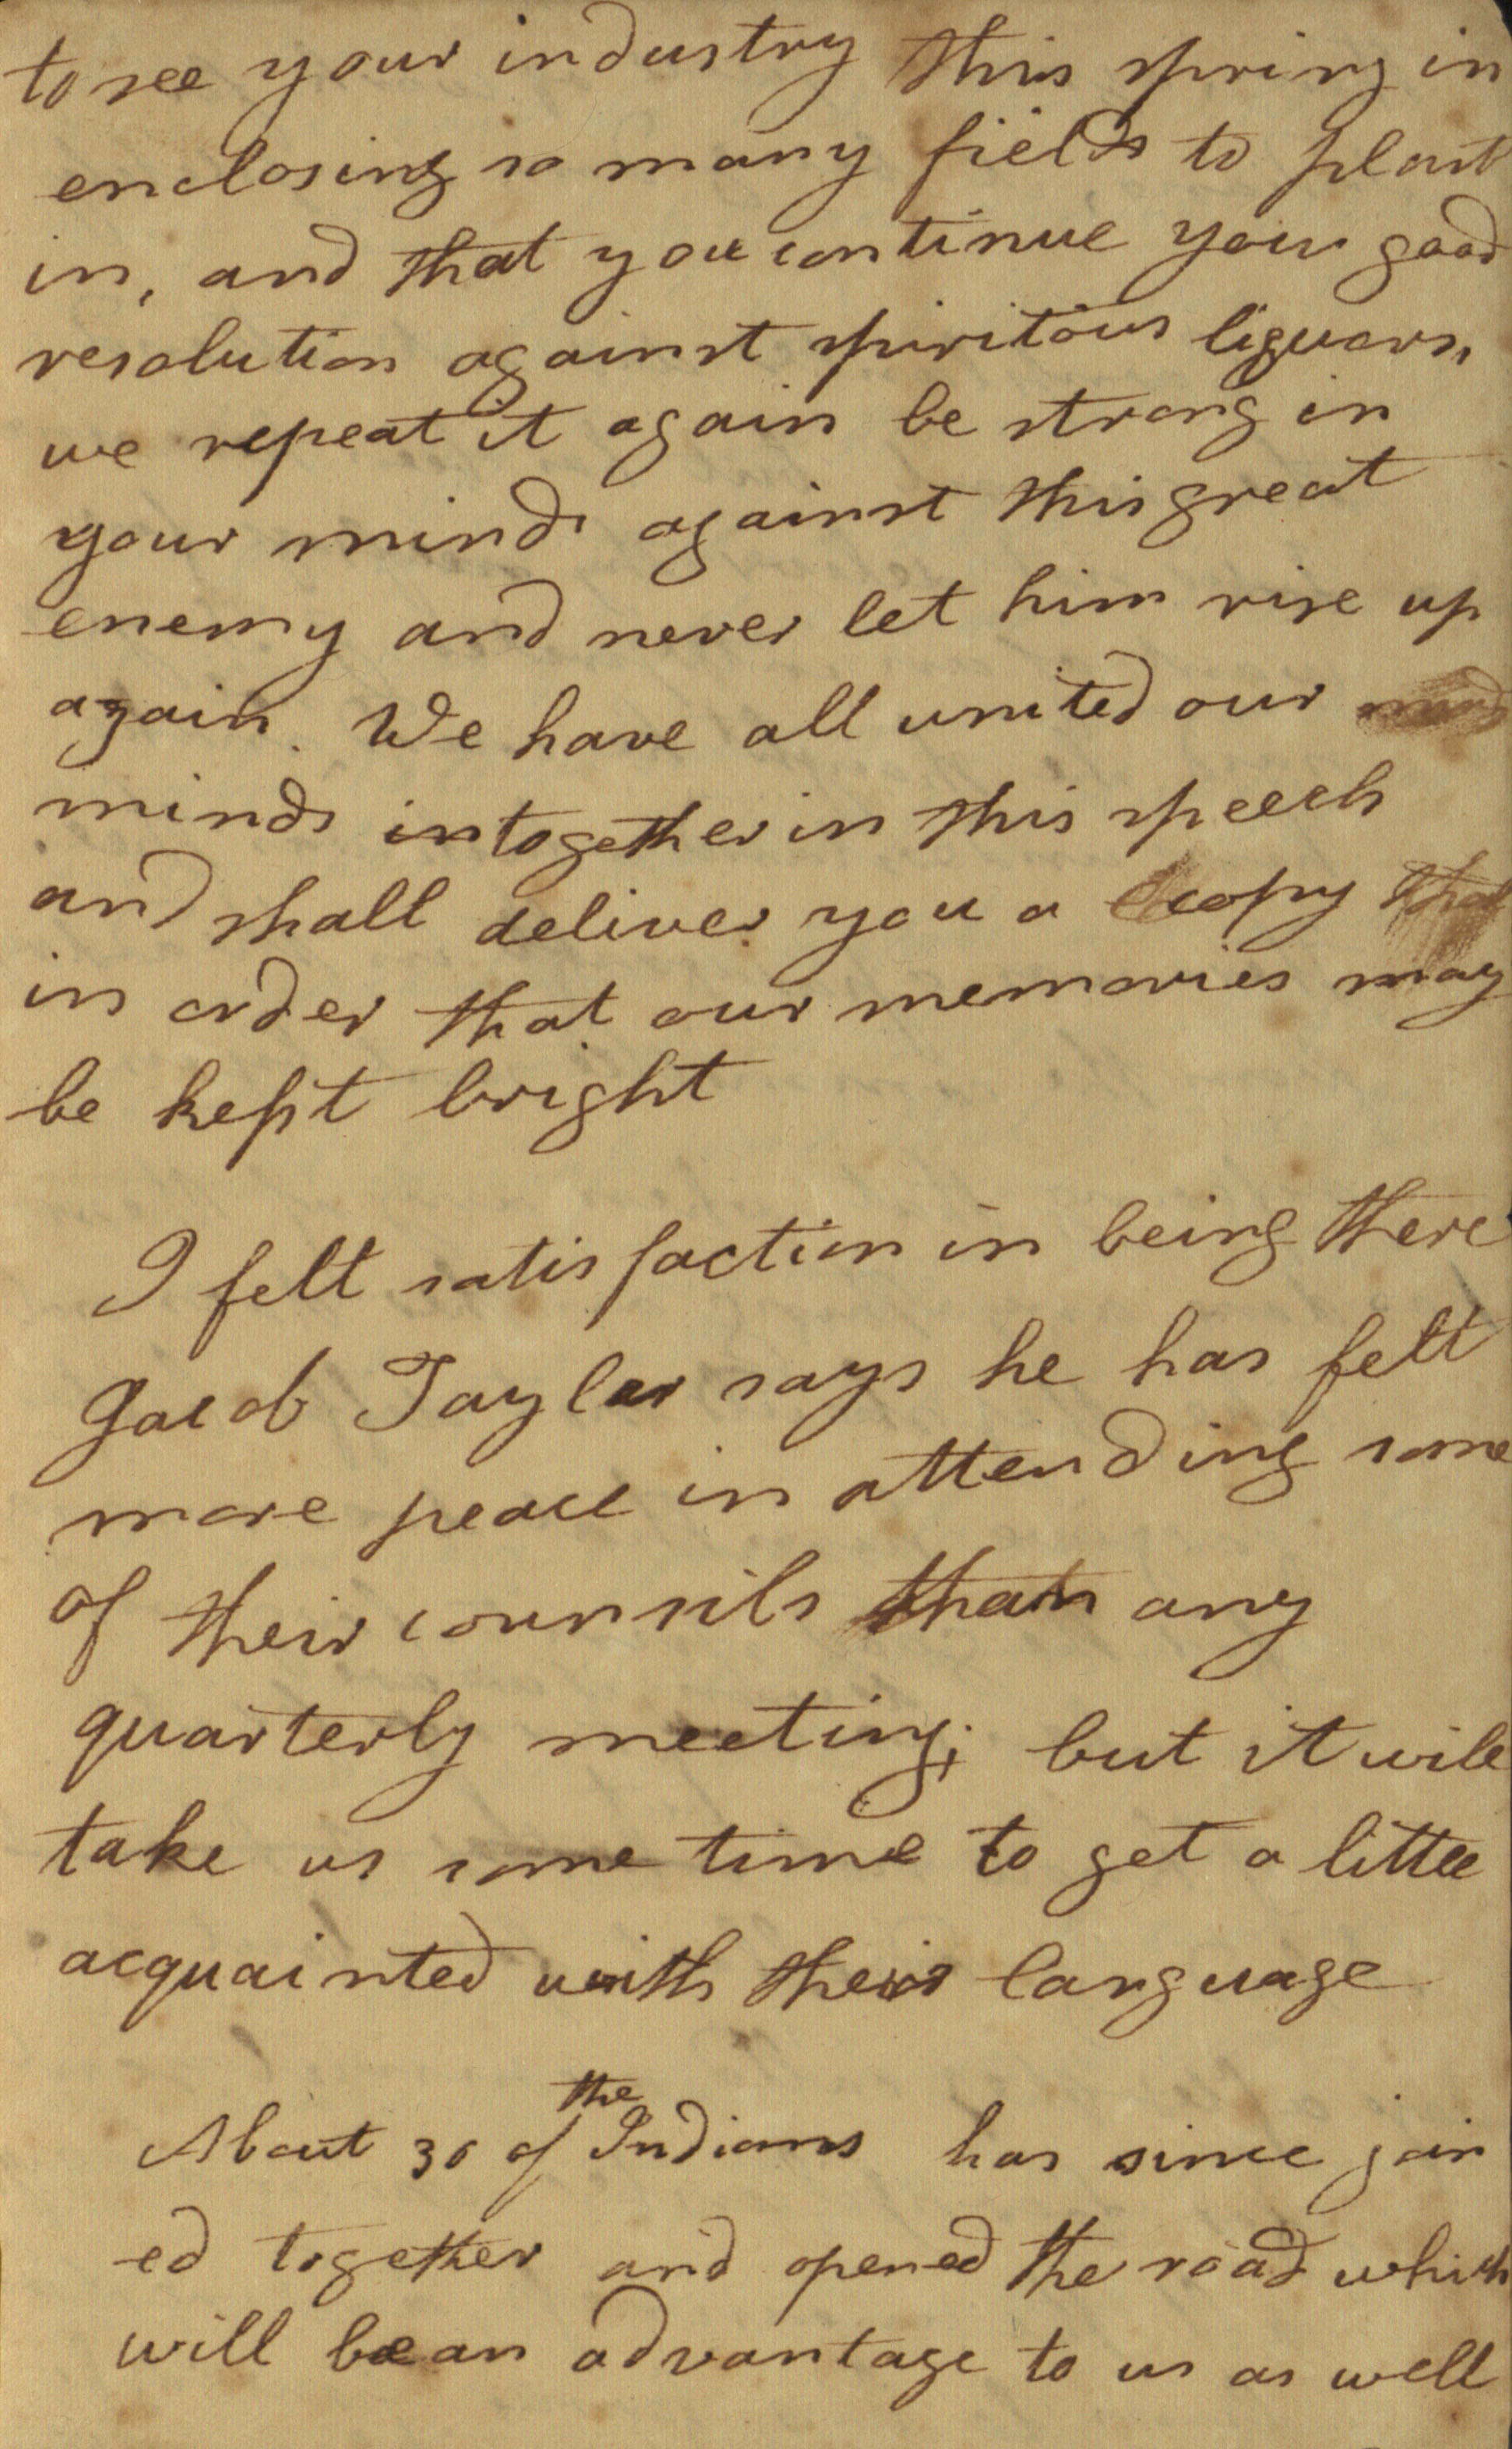 to see your industry this spring in
enclosing so many fields to plant
in, and that you continue your good
resolution against spiritous liquors,
we repeat it again be strong in
your minds against this great
enemy and never let him rise up
again. We have all united our
minds in together in this speech
and shall deliver you a copy that
in order that our memories may
be kept bright
I felt satisfaction in being there
Jacob Taylor says he has felt
more peace in attending some
of their counsils than any
quarterly meeting; but it will
take us some time to get a little
acquainted with their language
About 30 of the Indians has since join
ed together and opened the road which
will be an advantage to us as well